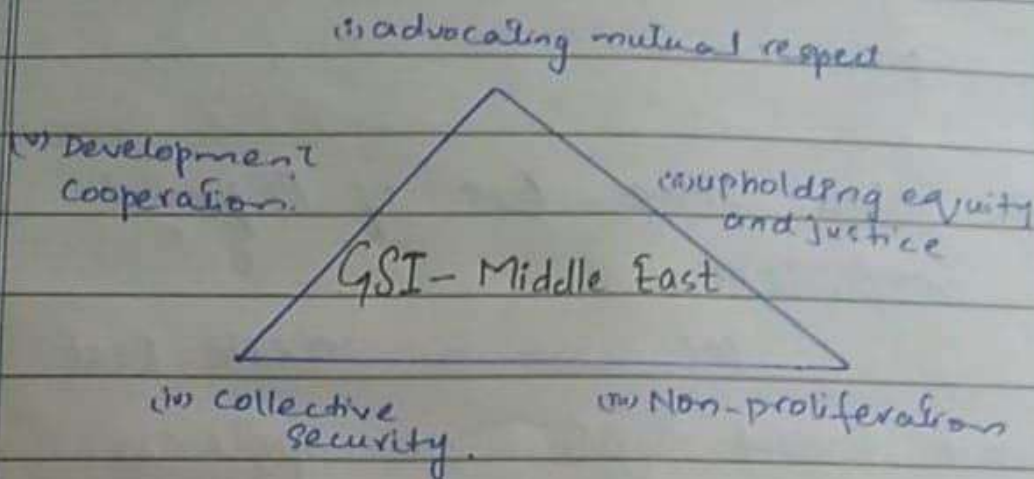 (i) advocating mutual respect
(v) Development
Cooperation.
(ii) upholding equity
and justice
GSI - Middle East
(iv) Collective
security.
(iii) Non-proliferation